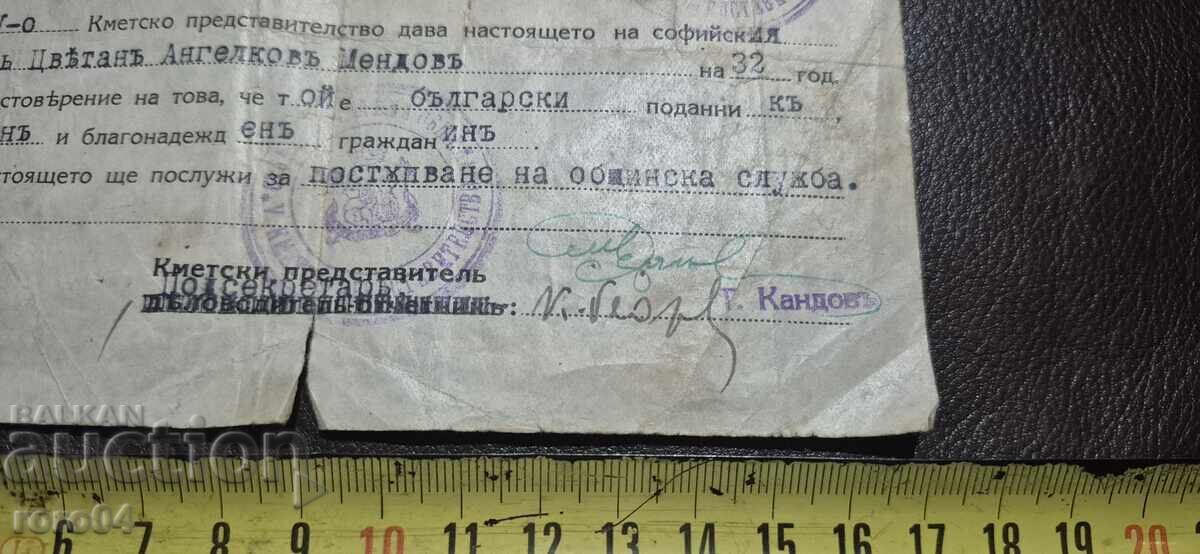 V-о Кметско представителство дава настоящето на софийския
ь Цвѣтанъ Ангелковъ Мендовъ на 32 год.
стовѣрение на това, че т ой е български поданни къ,
нъ и благонадежд енъ граждан инъ.
стоящето ще послужи за постѫпване на общинска служба.
Кметски представитель
Подсекретарь
Дѣловодитель-отчетникъ:
Г. Кандовъ
BALKAN
auction
roro04
6 7 8 9 10 11 12 13 14 15 16 17 18 19 20